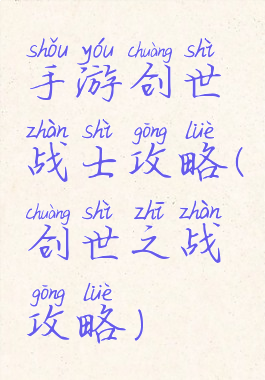 shǒu yóu chuàng shì
手游创世
zhàn shì gōng lüè
战士攻略(
chuàng shì zhī zhàn
创世之战
gōng lüè
攻略)